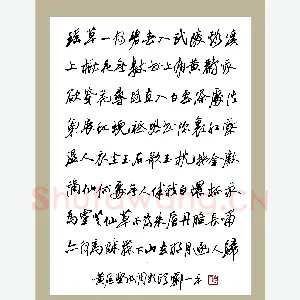 瑶草一何碧春入武陵溪溪
上桃花无数枝上有黄鹂我
欲穿花寻路直入白云深处浩
气展虹霓祇恐花深里红露
湿人衣坐玉石欹玉枕拂金徽
谪仙何处无人伴我白螺杯我
为灵芝仙草不为朱唇丹脸长啸
亦何为醉舞下山去明月逐人归
黄庭坚词水调歌头
Shufawang.CN